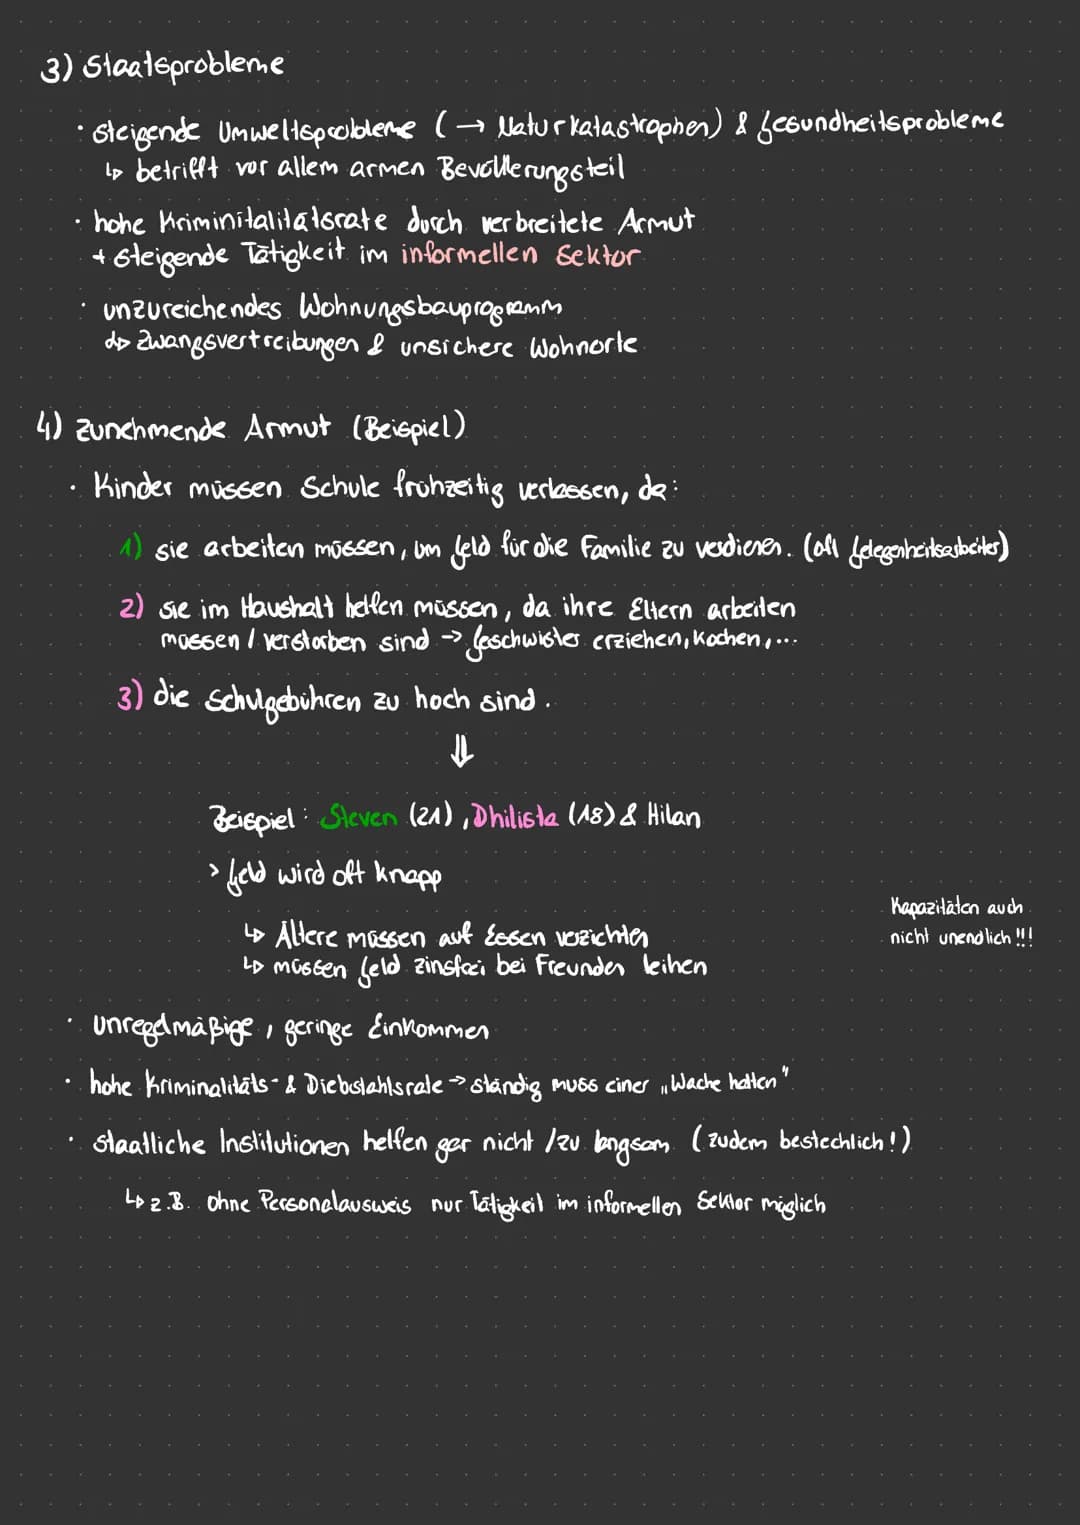 3) Staatsprobleme
· steigende Umweltsprobleme (→ Naturkatastrophen) & Gesundheitsprobleme
↳ betrifft vor allem armen Bevölkerungsteil
· hohe Kriminitalitätsrate durch verbreitete Armut
+ steigende Tätigkeit im informellen Sektor
· unzureichendes Wohnungsbauprogramm
↳ Zwangsvertreibungen & unsichere Wohnorte
4) Zunehmende Armut (Beispiel)
· Kinder müssen Schule frühzeitig verlassen, da:
1) sie arbeiten müssen, um Geld für die Familie zu verdienen. (oft Gelegenheitsarbeiter)
2) sie im Haushalt helfen müssen, da ihre Eltern arbeiten
müssen / verstorben sind → Geschwister erziehen, kochen, ...
3) die Schulgebühren zu hoch sind.
⇓
Beispiel: Steven (21), Dhilista (18) & Hilan
> Geld wird oft knapp
Kapazitäten auch
nicht unendlich!!!
↳ Ältere müssen auf Essen verzichten
↳ müssen Geld zinsfrei bei Freunden leihen
· unregelmäßige, geringe Einkommen
· hohe Kriminalitäts- & Diebstahlsrate → ständig muss einer „Wache halten"
· staatliche Institutionen helfen gar nicht / zu langsam (zudem bestechlich!)
↳ z.B. ohne Personalausweis nur Tätigkeit im informellen Sektor möglich